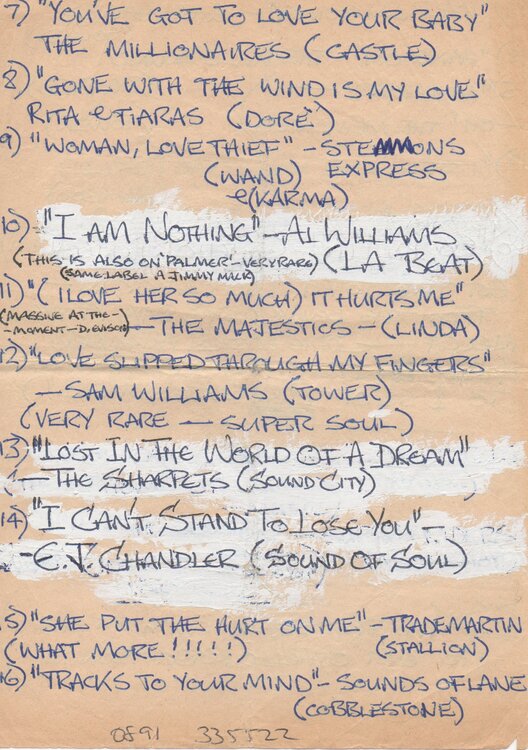 7) "YOU'VE GOT TO LOVE YOUR BABY"
THE MILLIONAIRES (CASTLE)
8) "GONE WITH THE WIND IS MY LOVE"
RITA & TIARAS (DORÉ)
9) "WOMAN, LOVE THIEF" - STEMMONS
(WAND) EXPRESS
& (KARMA)
10) "I AM NOTHING" - AL WILLIAMS
(THIS IS ALSO ON 'PALMER' - VERY RARE) (LA BEAT)
(SAME LABEL A JIMMY MACK)
11) "(I LOVE HER SO MUCH) IT HURTS ME"
(MASSIVE AT THE -
MOMENT - D. EVISON) - THE MAJESTICS - (LINDA)
12) "LOVE SLIPPED THROUGH MY FINGERS"
- SAM WILLIAMS (TOWER)
(VERY RARE - SUPER SOUL)
13) "LOST IN THE WORLD OF A DREAM"
- THE SHARPETS (SOUND CITY)
14) "I CAN'T STAND TO LOSE YOU" -
- E.J. CHANDLER (SOUND OF SOUL)
5) "SHE PUT THE HURT ON ME" - TRADEMARTIN
(WHAT MORE !!!!!) (STALLION)
16) "TRACKS TO YOUR MIND" - SOUNDS OF LANE
(COBBLESTONE)
0891 335522